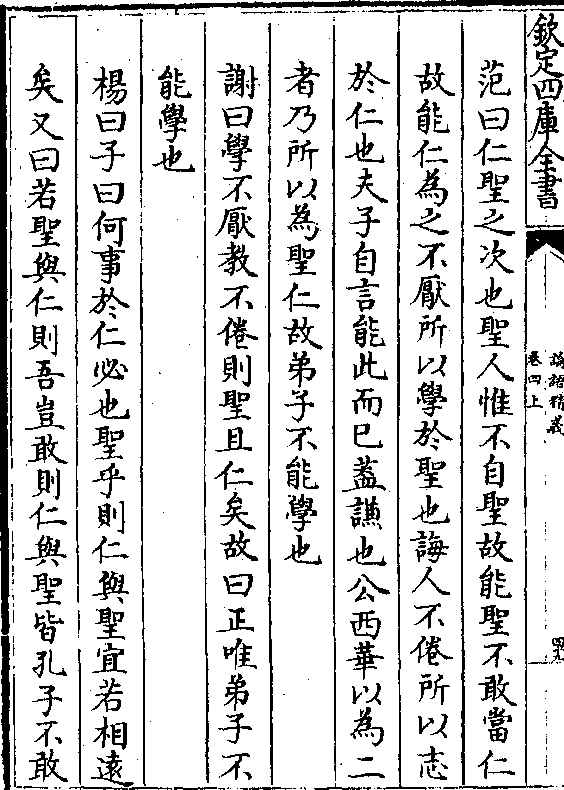 欽定四庫全書
論語精義
卷四上
四九
范曰仁聖之次也聖人惟不自聖故能聖不敢當仁
故能仁為之不厭所以學於聖也誨人不倦所以志
於仁也夫子自言能此而已葢謙也公西華以為二
者乃所以為聖仁故弟子不能學也
謝曰學不厭教不倦則聖且仁矣故曰正唯弟子不
能學也
楊曰子曰何事於仁必也聖乎則仁與聖宜若相遠
矣又曰若聖與仁則吾豈敢則仁與聖皆孔子不敢